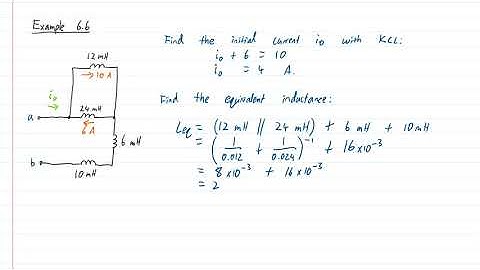 Example 6.6
12 mH
→ 10 A
i₀
24 mH
a
6 A
6 mH
b
10 mH
Find the initial current i₀ with KCL:
i₀ + 6 = 10
i₀ = 4 A.
Find the equivalent inductance:
Leq = (12 mH || 24 mH) + 6 mH + 10 mH
= (1/0.012 + 1/0.024)⁻¹ + 16×10⁻³
= 8×10⁻³ + 16×10⁻³
= 2